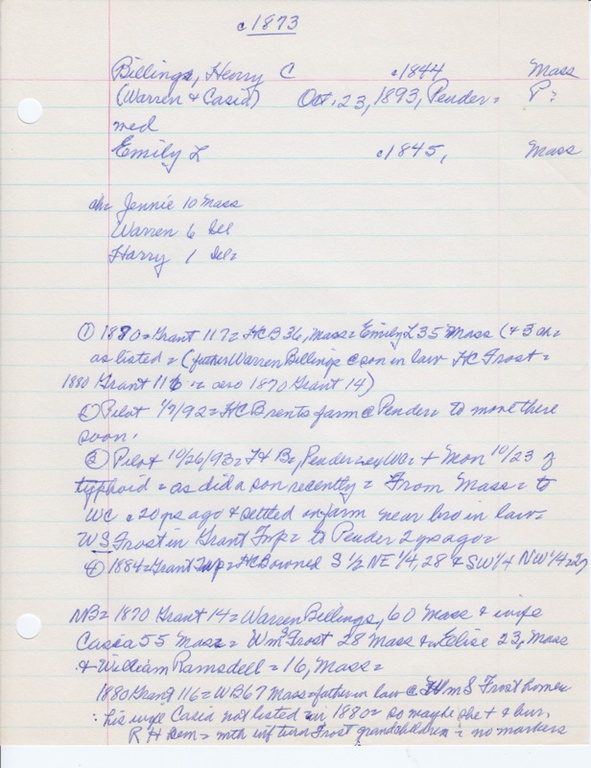 c1873
Billings, Henry C c1844 Mass
(Warren & Casia) Oct. 23, 1893, Pender = P?
med
Emily L c1845, Mass
ch = Jennie 10 Mass
Warren 6 Ill
Harry 1 Ill =
① 1880 = Grant 117 = HCB 36, Mass = Emily L 35 Mass (+ 3 ch =
as listed = (father Warren Billings @ son in law HC Frost =
1880 Grant 116 = also 1870 Grant 14)
② Pilot 1/7/92 = HCB rents farm @ Pender to move there
soon.
③ Pilot 10/26/93 = HB, Pender + Mon 10/23 of
typhoid = as did a son recently = From Mass = to
WC c20 yrs ago & settled on farm near bro in law =
WS Frost in Grant Twp = to Pender 2 yrs ago =
④ 1884 = Grant Twp = HCB owned S ½ NE ¼, 28 & SW ¼ NW ¼ = 27
NB = 1870 Grant 14 = Warren Billings, 60 Mass & wife
Casia 55 Mass = Wm S Frost 28 Mass & Elise 23, Mass
& William Ramsdell = 16, Mass =
1880 Grant 116 = WB 67 Mass = father in law @ Wm S Frost home
: his wife Casia not listed in 1880 = so maybe she + & bur.
R H Cem = with inf twin Frost grandchildren = no markers